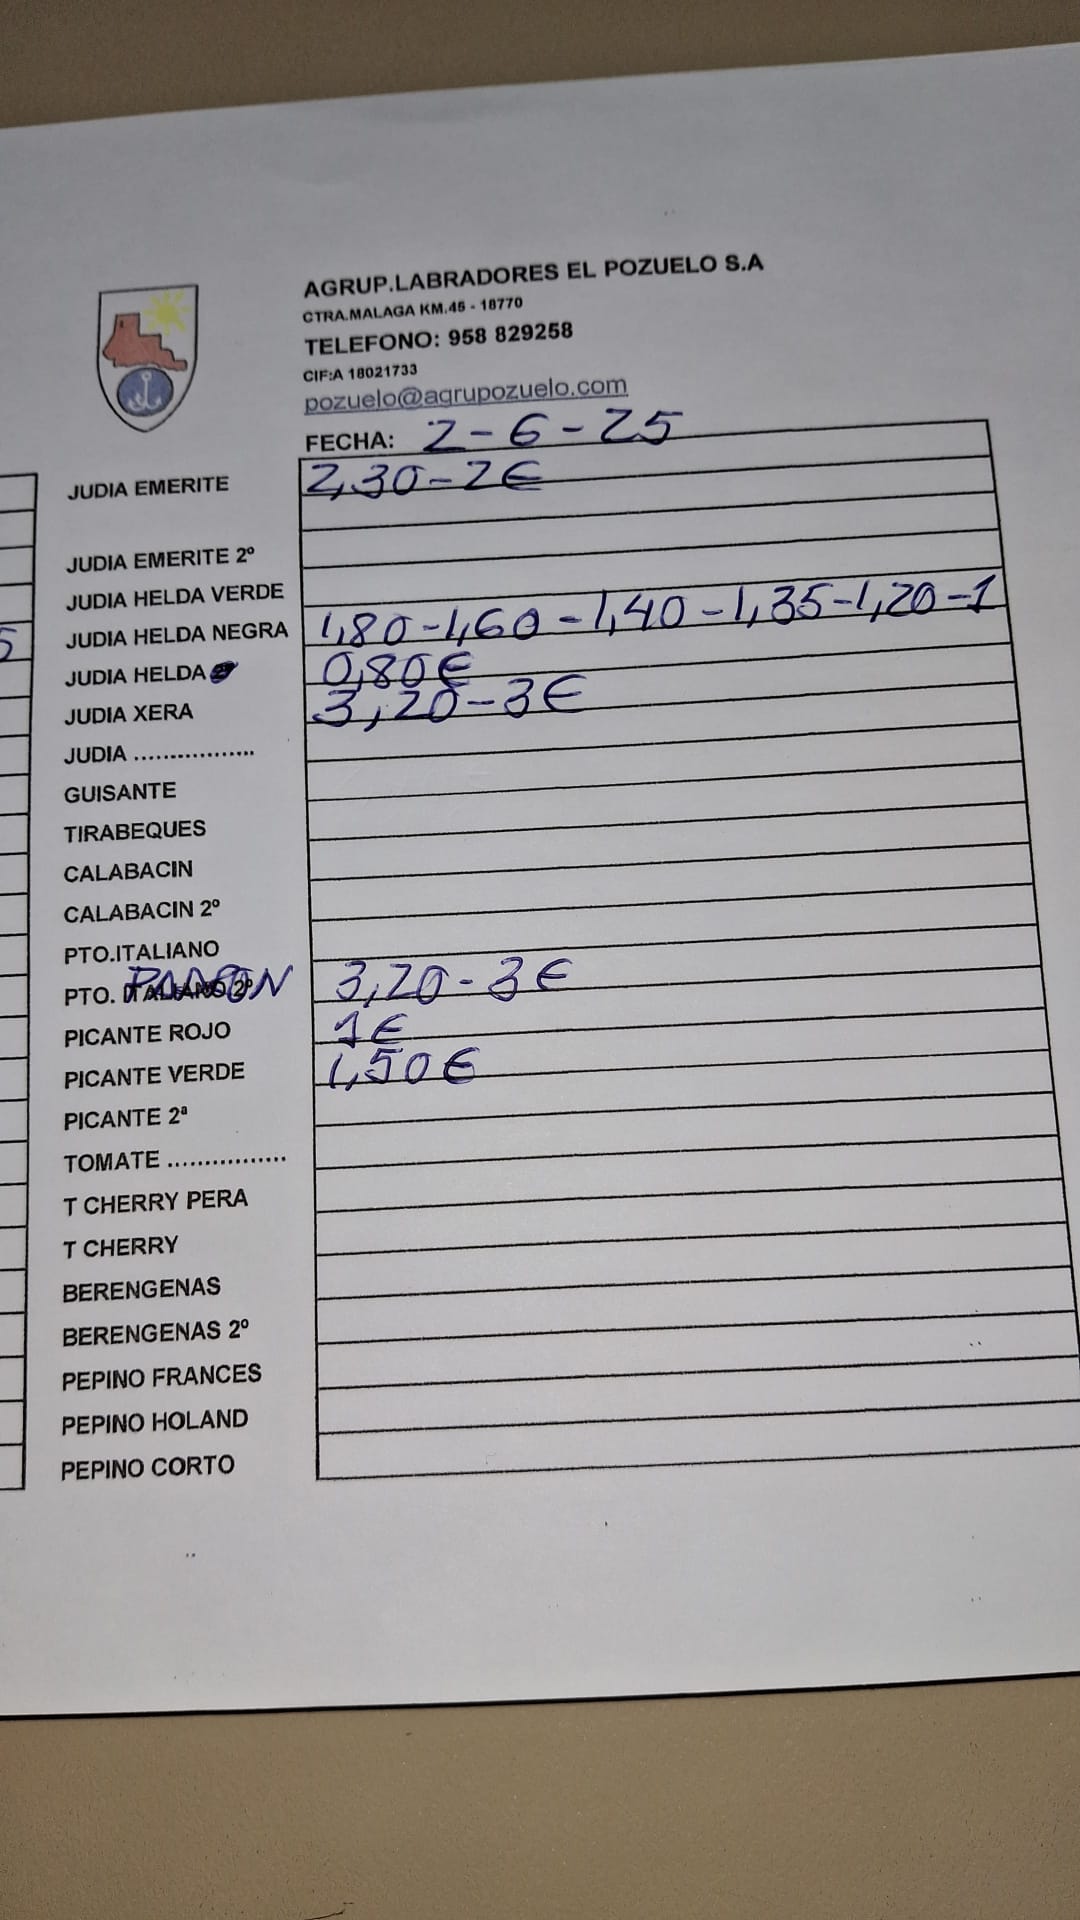 AGRUP.LABRADORES EL POZUELO S.A
CTRA.MALAGA KM.45 - 18770
TELEFONO: 958 829258
CIF:A 18021733
pozuelo@agrupozuelo.com
FECHA: 2-6-25
JUDIA EMERITE 2,30-2€
JUDIA EMERITE 2º
JUDIA HELDA VERDE
JUDIA HELDA NEGRA 1,80-1,60-1,40-1,35-1,20-1
JUDIA HELDA 0,80€
JUDIA XERA 3,20-3€
JUDIA .................
GUISANTE
TIRABEQUES
CALABACIN
CALABACIN 2º
PTO.ITALIANO
PTO. ITALIANO 2º 3,20-3€
PICANTE ROJO 1€
PICANTE VERDE 1,50€
PICANTE 2ª
TOMATE ................
T CHERRY PERA
T CHERRY
BERENGENAS
BERENGENAS 2º
PEPINO FRANCES
PEPINO HOLAND
PEPINO CORTO